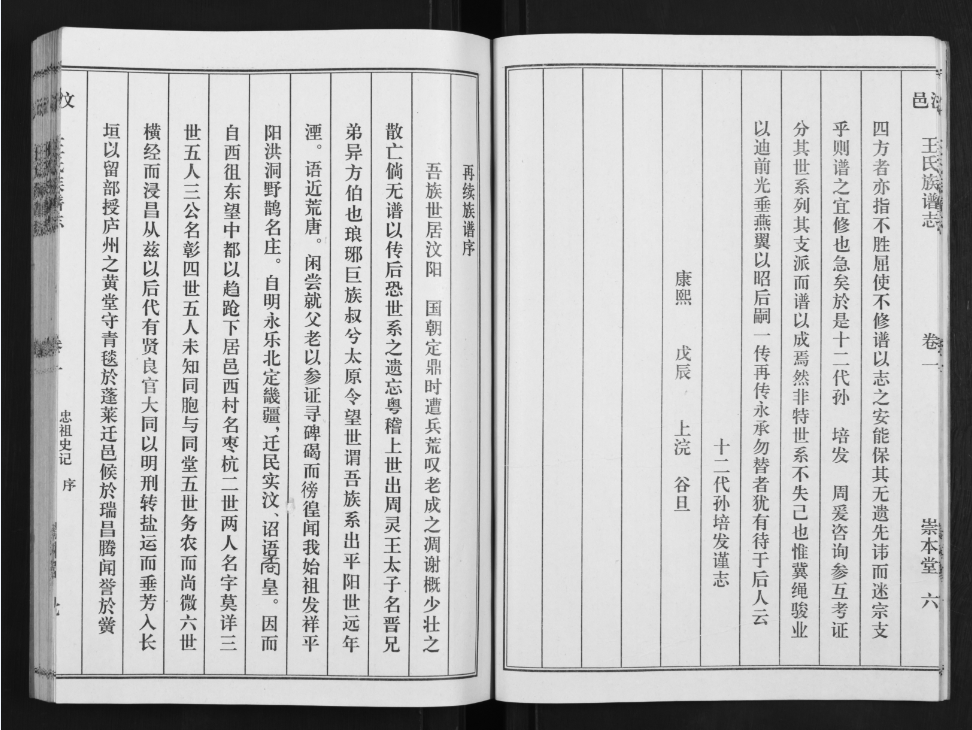 邑
王氏族谱志
卷一
崇本堂
六
四方者亦指不胜屈使不修谱以志之安能保其无遗先讳而迷宗支
乎则谱之宜修也急矣於是十二代孙　培发　周爰咨询参互考证
分其世系列其支派而谱以成焉然非特世系不失己也惟冀绳骏业
以迪前光垂燕翼以昭后嗣一传再传永承勿替者犹有待于后人云
十二代孙培发谨志
康熙　戊辰　上浣　谷旦
再续族谱序
吾族世居汶阳　国朝定鼎时遭兵荒叹老成之凋谢概少壮之
散亡倘无谱以传后恐世系之遗忘粤稽上世出周灵王太子名晋兄
弟异方伯也琅琊巨族叔兮太原令望世谓吾族系出平阳世远年
湮。语近荒唐。闲尝就父老以参证寻碑碣而徬徨闻我始祖发祥平
阳洪洞野鹊名庄。自明永乐北定畿疆，迁民实汶、诏语矞皇。因而
自西徂东望中都以趋跄下居邑西村名枣杭二世两人名字莫详三
世五人三公名彰四世五人未知同胞与同堂五世务农而尚微六世
横经而浸昌从兹以后代有贤良官大同以明刑转盐运而垂芳入长
垣以留部授庐州之黄堂守青毯於蓬莱迁邑候於瑞昌腾闻誉於黉
汶
忠祖史记　序